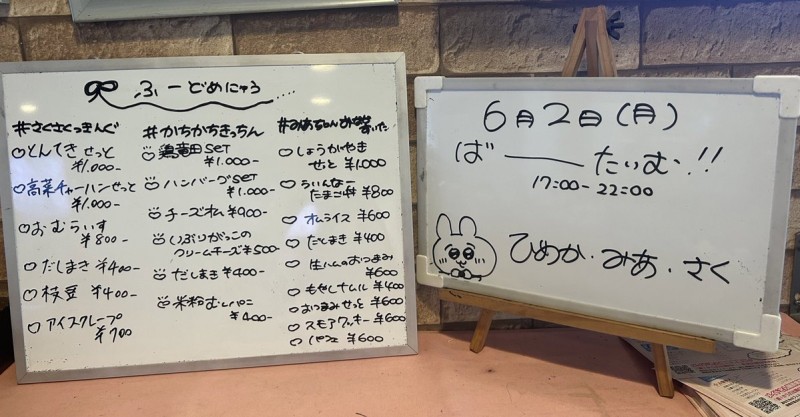 ふーどめにゅう
#さくさくっきんぐ
♡とんてきせっと
¥1.000-
♡高菜チャーハンせっと
¥1.000-
♡おむらいす
¥800-
♡だしまき ¥400-
♡枝豆 ¥400-
♡アイスクレープ
¥700
#かちかちきっちん
鶏竜田SET
¥1.000-
ハンバーグSET
¥1.000-
チーズオム ¥900-
いぶりがっこの
クリームチーズ ¥500-
だしまき ¥400-
米粉むしぱん
¥400-
#みあちゃんお腹すいた
♡しょうがやき
せっと ¥1.000
♡ういんなー
たまご丼 ¥800
♡オムライス ¥600
♡だしまき ¥400
♡生ハムのおつまみ
¥600
♡もやしナムル ¥400
♡おつまみせっと ¥600
♡スモアクッキー ¥600
♡パフェ ¥600
6月2日(月)
ば――たいむ!!
17:00-22:00
ひめか・みあ・さく